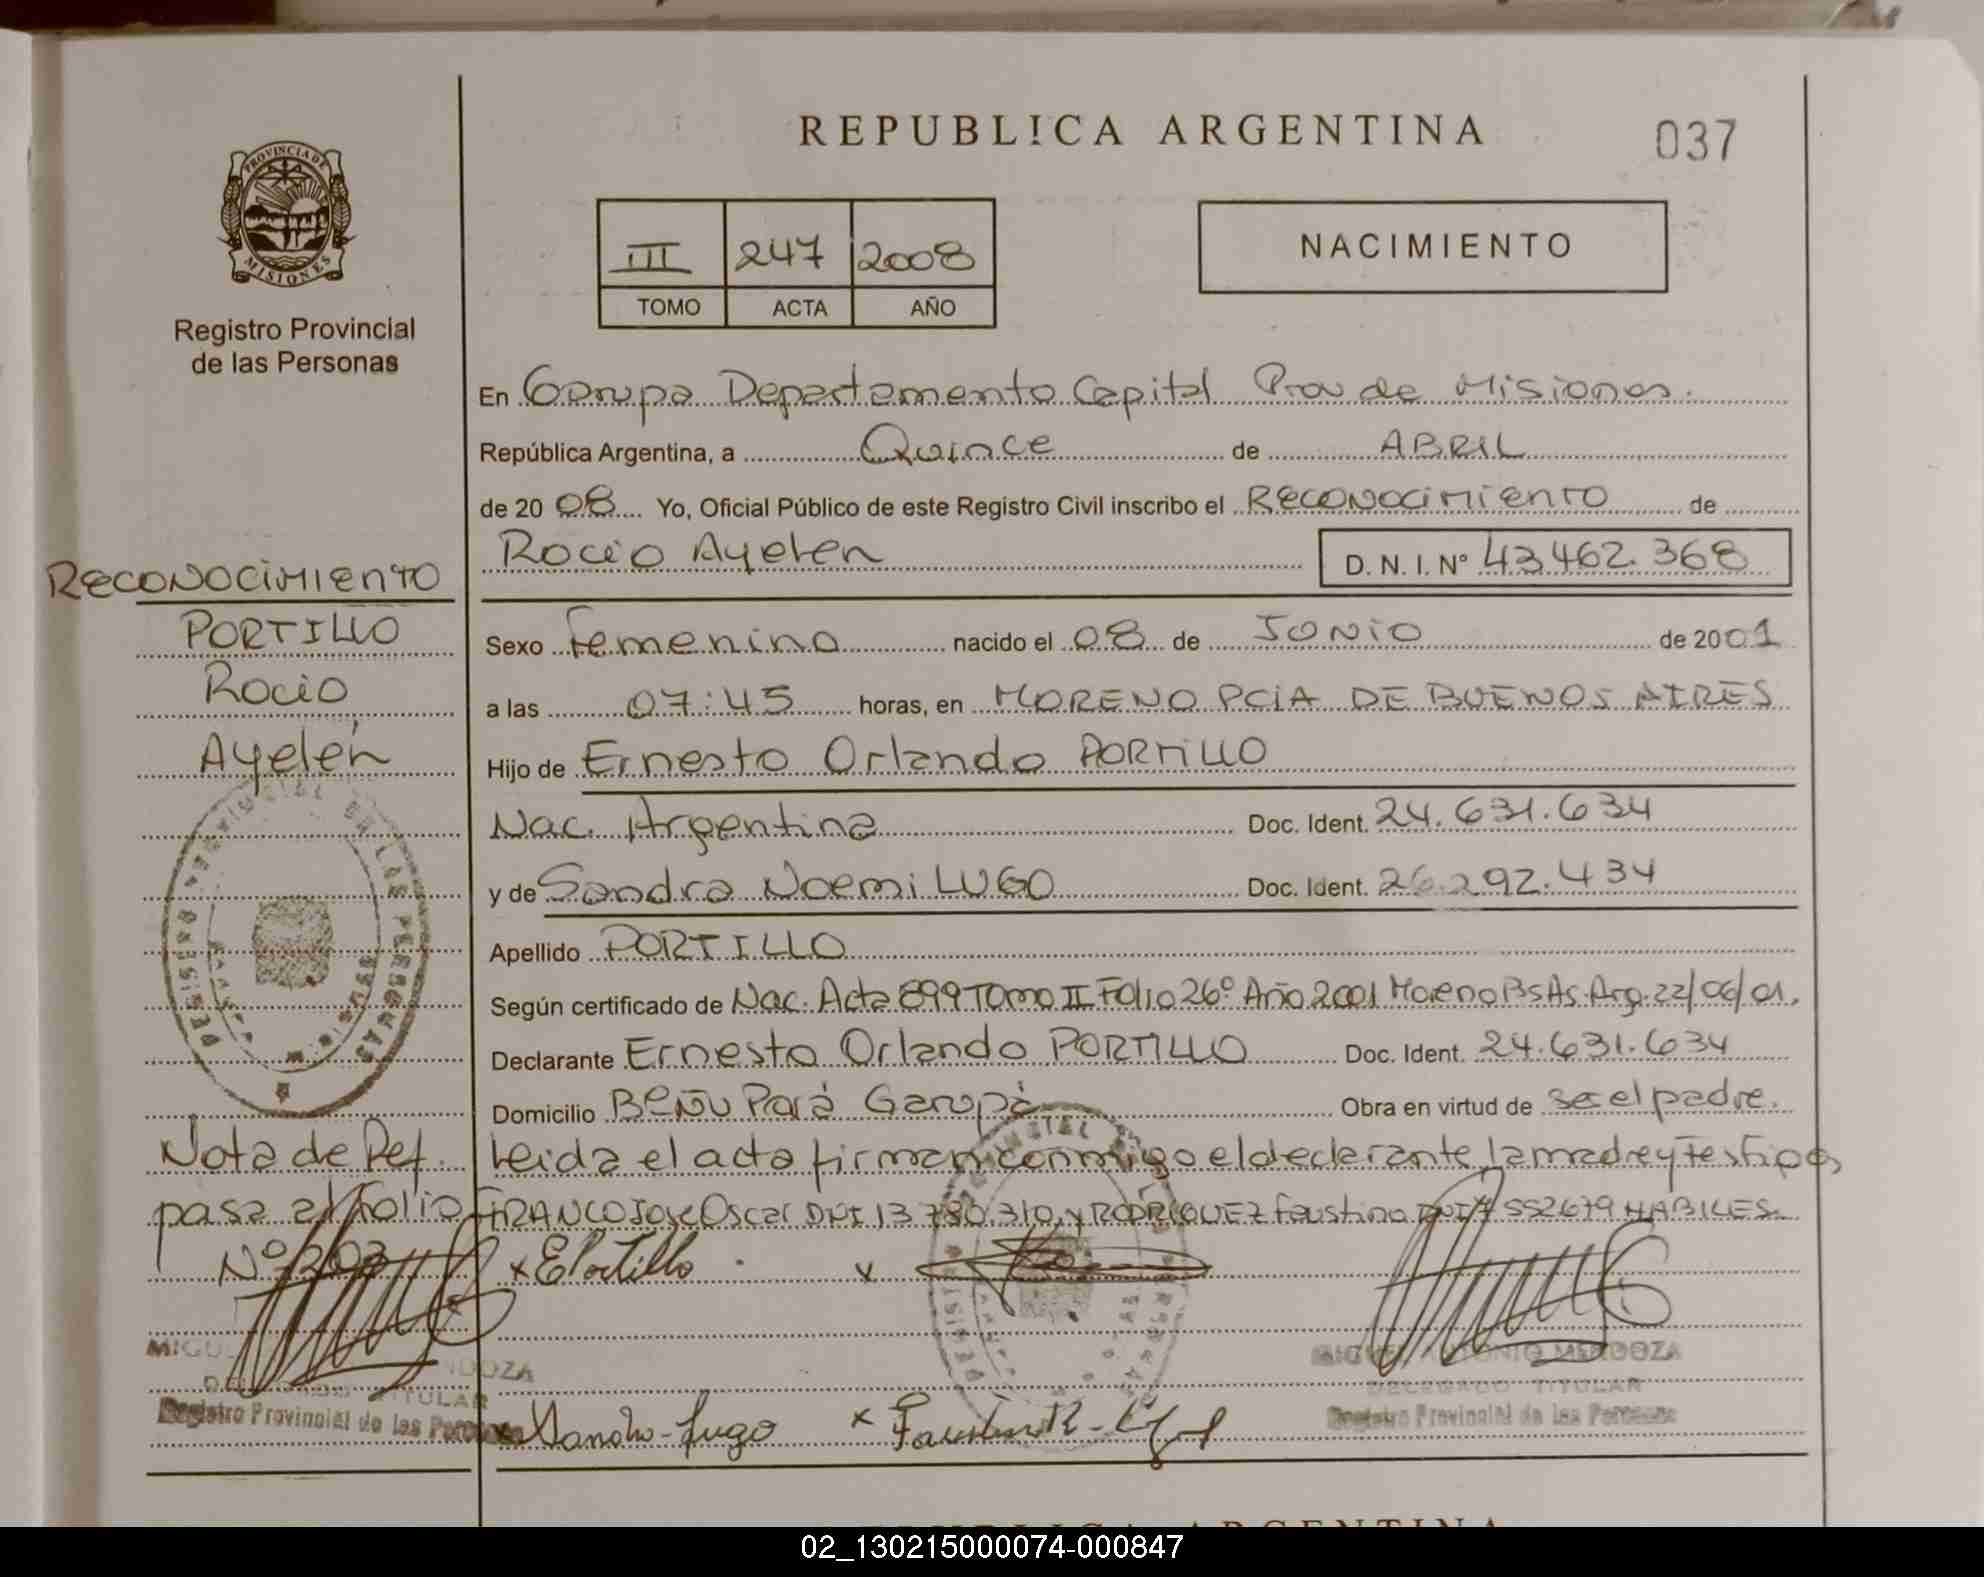 REPUBLICA ARGENTINA
037
PROVINCIA DE
MISIONES
Registro Provincial
de las Personas
III 247 2008
TOMO ACTA AÑO
NACIMIENTO
En Garupa Departamento Capital Prov de Misiones.
República Argentina, a Quince de ABRIL
de 2008 Yo, Oficial Público de este Registro Civil inscribo el Reconocimiento de
Rocio Ayelen D. N. I. N° 43.462.368
Reconocimiento
PORTILLO
Rocio
Ayelén
Sexo Femenino nacido el 08 de JUNIO de 2001
a las 07:45 horas, en MORENO PCIA DE BUENOS AIRES
Hijo de Ernesto Orlando PORTILLO
Nac. Argentina Doc. Ident. 24.631.634
y de Sandra Noemi LUGO Doc. Ident. 26.292.434
Apellido PORTILLO
Según certificado de Nac. Acta 899 Tomo II Folio 26° Año 2001 Moreno Bs As. Arg. 22/06/01.
Declarante Ernesto Orlando PORTILLO Doc. Ident. 24.631.634
Domicilio Beñu Porá Garupá Obra en virtud de ser el padre.
Leida el acta firman conmigo el declarante, la madre y testigos
FRANCO Jose Oscar DNI 13.780.310, y RODRIGUEZ Faustino DNI 7 552679 HABILES.
Nota de Ref.
pasa al folio
N° 203
x EPortillo x
MIGUEL ANTONIO MENDOZA
DELEGADO TITULAR
Registro Provincial de las Personas
x Sandra Lugo x Faustino R.
MIGUEL ANTONIO MENDOZA
DELEGADO TITULAR
Registro Provincial de las Personas
02_130215000074-000847